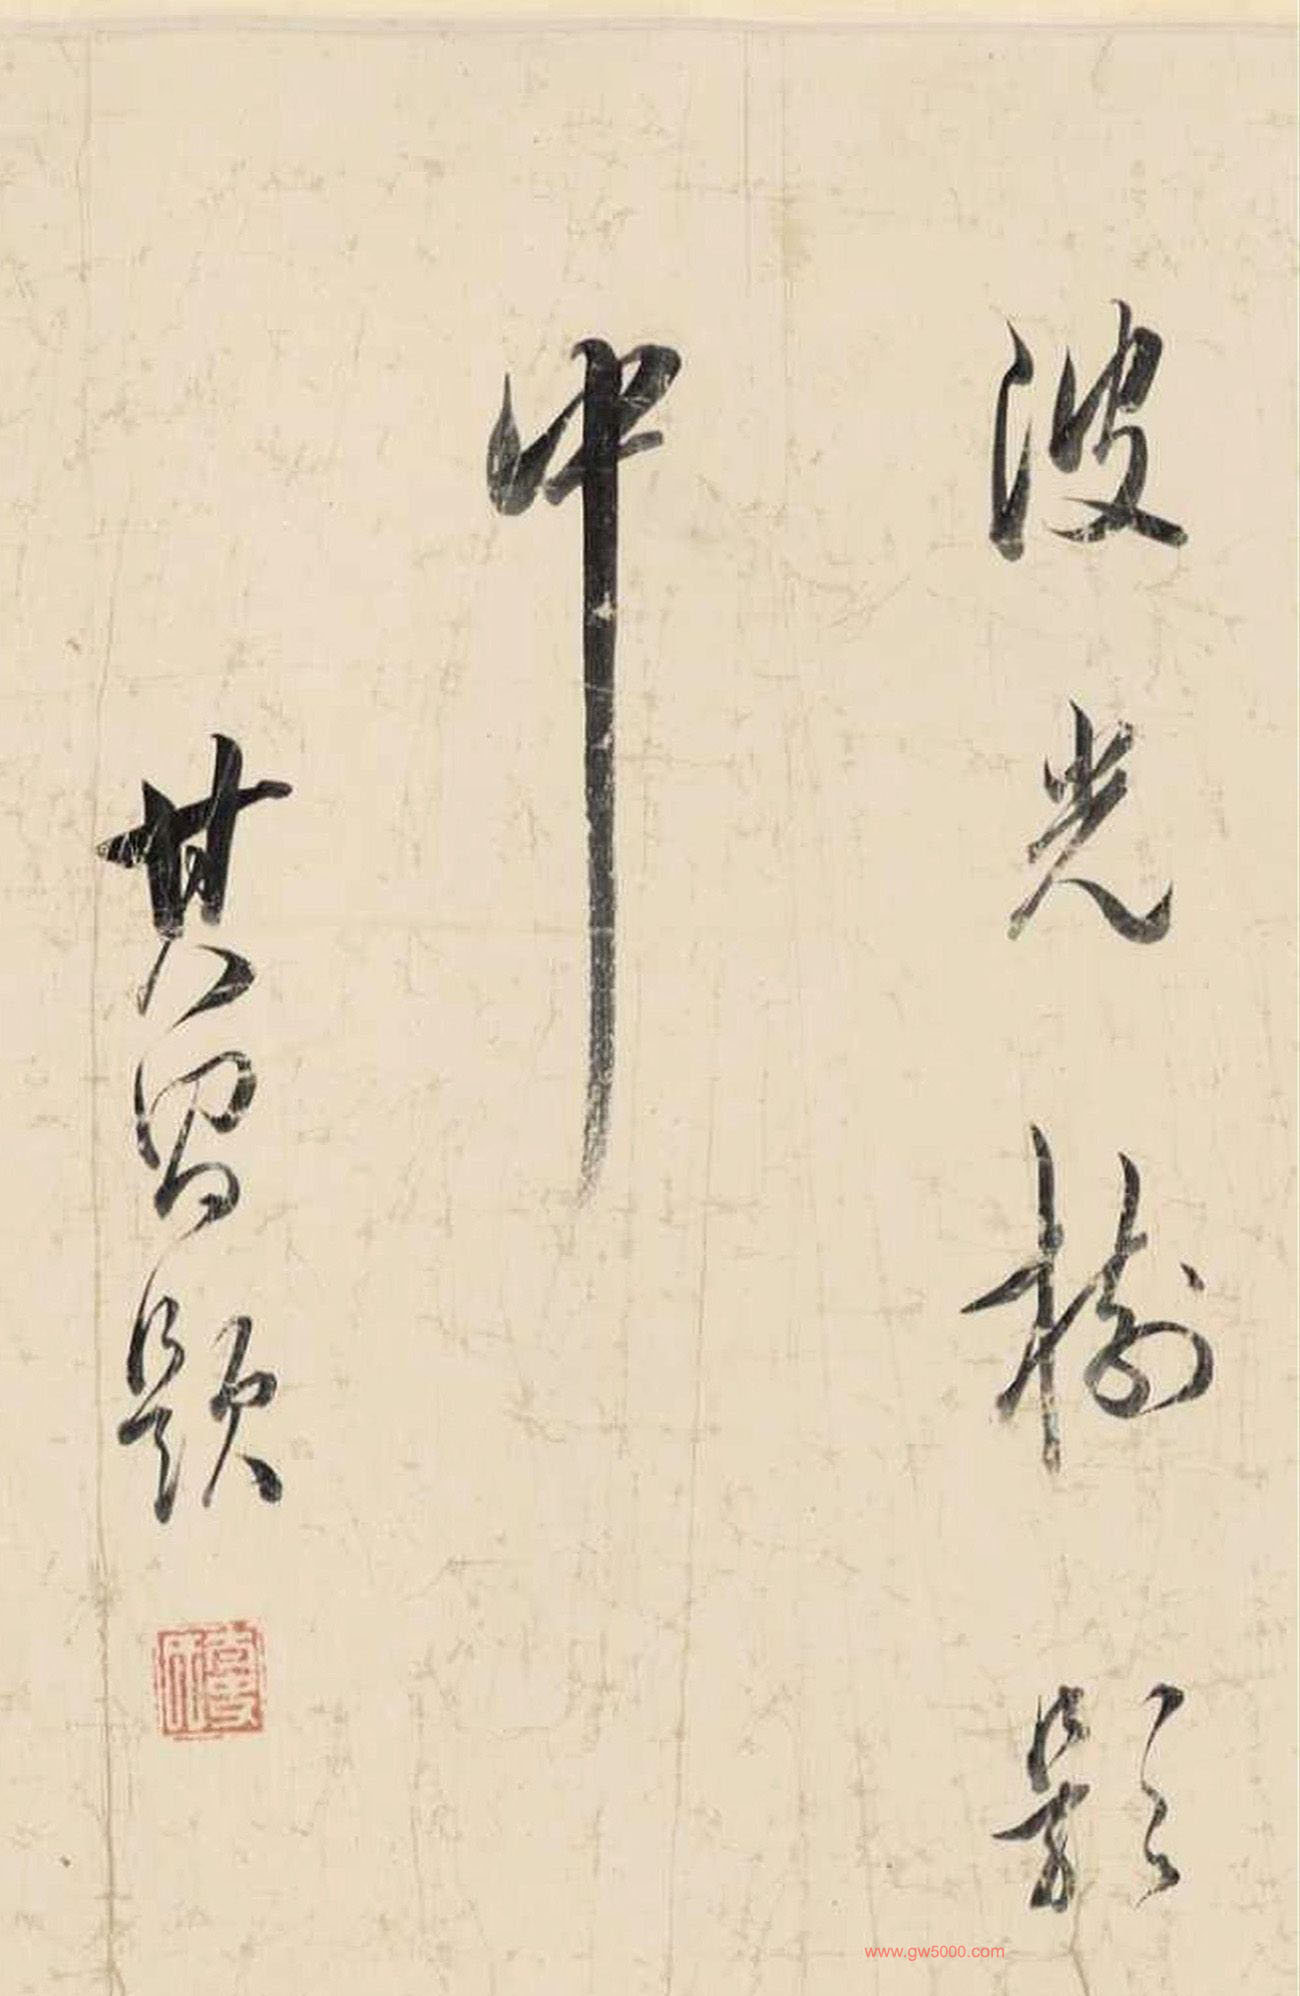 波光樹影
中
其昌題
www.gw5000.com